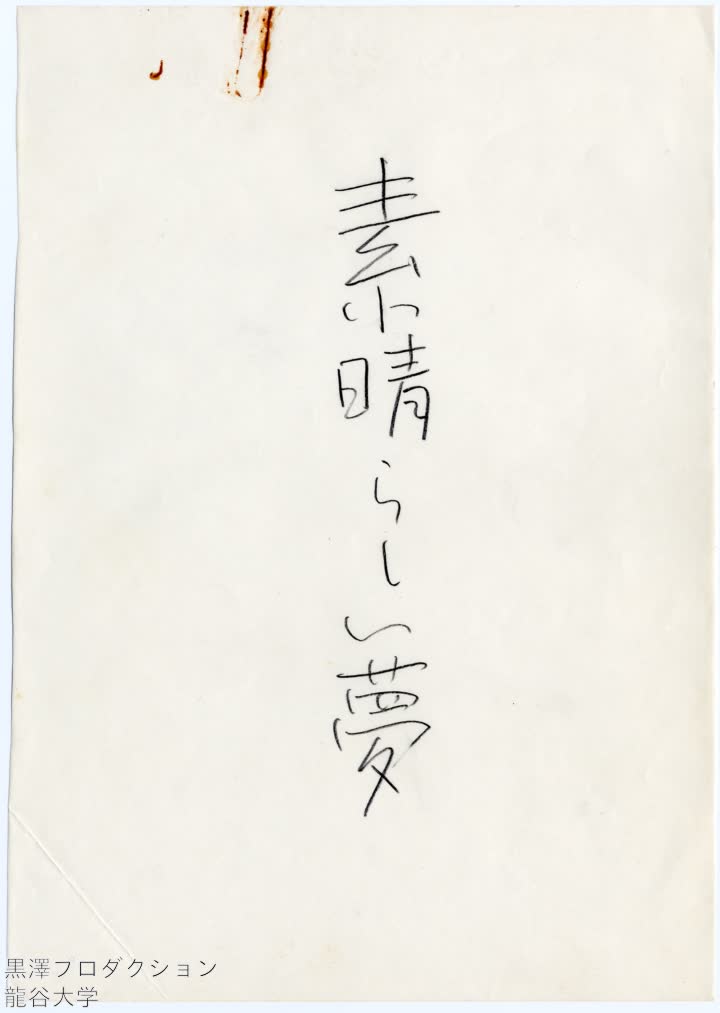 素晴らしい夢
黒澤フロダクション
龍谷大学